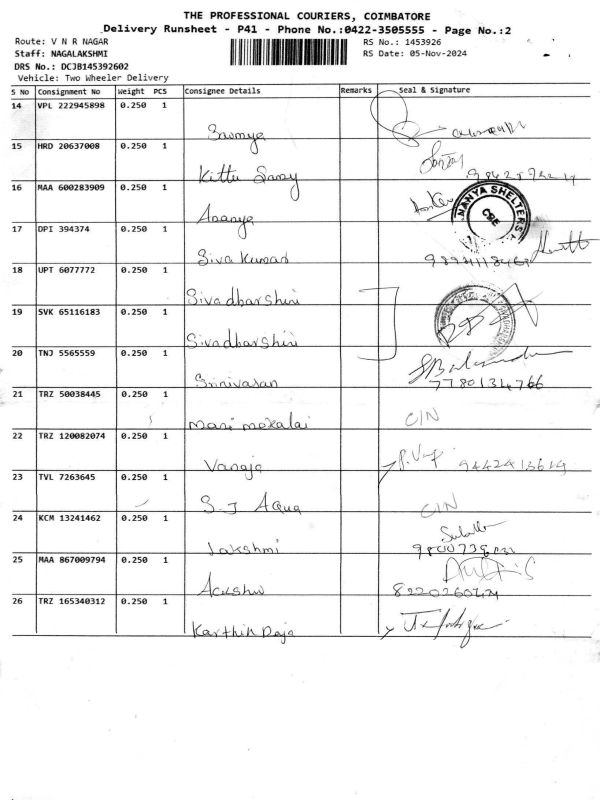 THE PROFESSIONAL COURIERS, COIMBATORE
Delivery Runsheet - P41 - Phone No.:0422-3505555 - Page No.:2
Route: V N R NAGAR
RS No.: 1453926
Staff: NAGALAKSHMI
RS Date: 05-Nov-2024
DRS No.: DCJB145392602
Vehicle: Two Wheeler Delivery
S No Consignment No Weight PCS Consignee Details Remarks Seal & Signature
14 VPL 222945898 0.250 1
Sowmya
15 HRD 20637008 0.250 1
Kittu Samy
16 MAA 600283909 0.250 1
Ananya
NANYA SHELTERS
CBE
17 DPI 394374 0.250 1
Siva Kumar
18 UPT 6077772 0.250 1
Sivadharshini
19 SVK 65116183 0.250 1
Sivadharshini
20 TNJ 5565559 0.250 1
Srinivasan
7780134766
21 TRZ 50038445 0.250 1
Mani mekalai C/N
22 TRZ 120082074 0.250 1
Vanaja 9442413619
23 TVL 7263645 0.250 1
S.J Aqua C/N
24 KCM 13241462 0.250 1
Lakshmi
25 MAA 867009794 0.250 1
26 TRZ 165340312 0.250 1
Karthik Raja